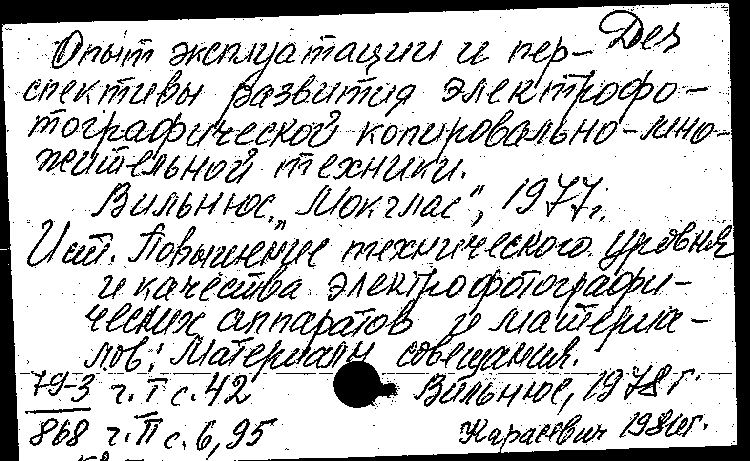 Деп
Опыт эксплуатации и пер-
спективы развития электрофо-
тографической копировально-мно-
жительной техники.
Вильнюс, „Мокслас", 1977г.
Ист. Повышение технического уровня
и качества электрофотографи-
ческих аппаратов и материа-
лов: Материалы совещания.
79-3 ч. I с. 42 Вильнюс, 1978г.
868 ч. II с. 6, 95 Карасевич 1980г.